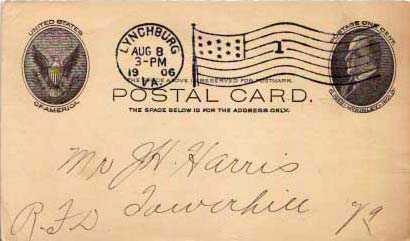 UNITED STATES
OF AMERICA.
LYNCHBURG
AUG 8
3-PM
1906
VA.
1
POSTAGE ONE CENT.
THE SPACE ABOVE IS RESERVED FOR POSTMARK.
POSTAL CARD.
THE SPACE BELOW IS FOR THE ADDRESS ONLY.
Mr J.H. Harris
R.F.D Towerhill Va